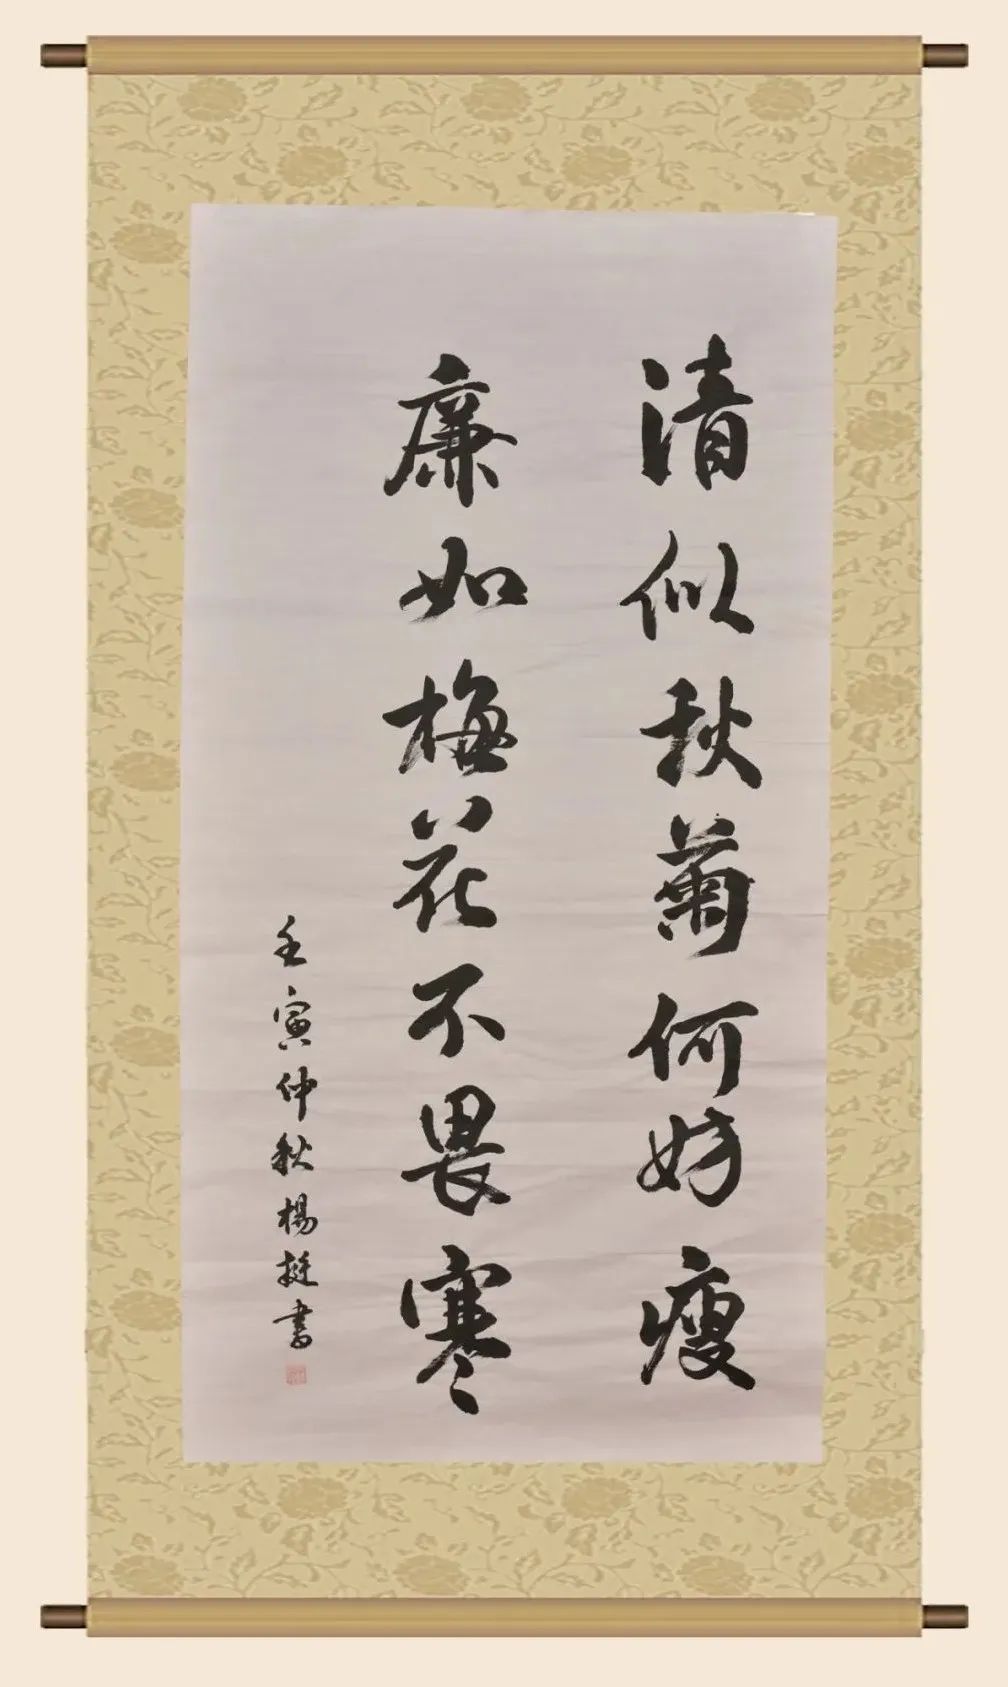 清似秋菊何妨瘦
廉如梅花不畏寒
壬寅仲秋楊挺書